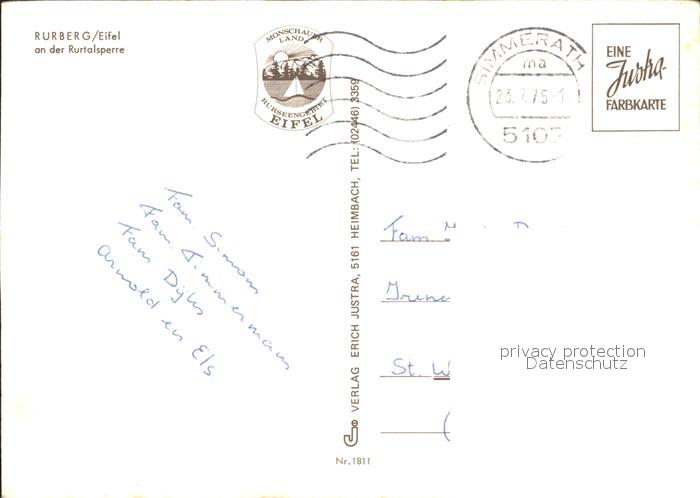 RURBERG/Eifel
an der Rurtalsperre
MONSCHAUER
LAND
RURSEENGEBIET
EIFEL
SIMMERATH
ma
23.7.75-1
5107
EINE
Justra-
FARBKARTE
Fam Simons
Fam. Timmermans
Fam Dijks
Arnold en Els
VERLAG ERICH JUSTRA, 5161 HEIMBACH, TEL: (02446) 3359
Nr. 1811
Fam
Irene
St. W
(
privacy protection
Datenschutz